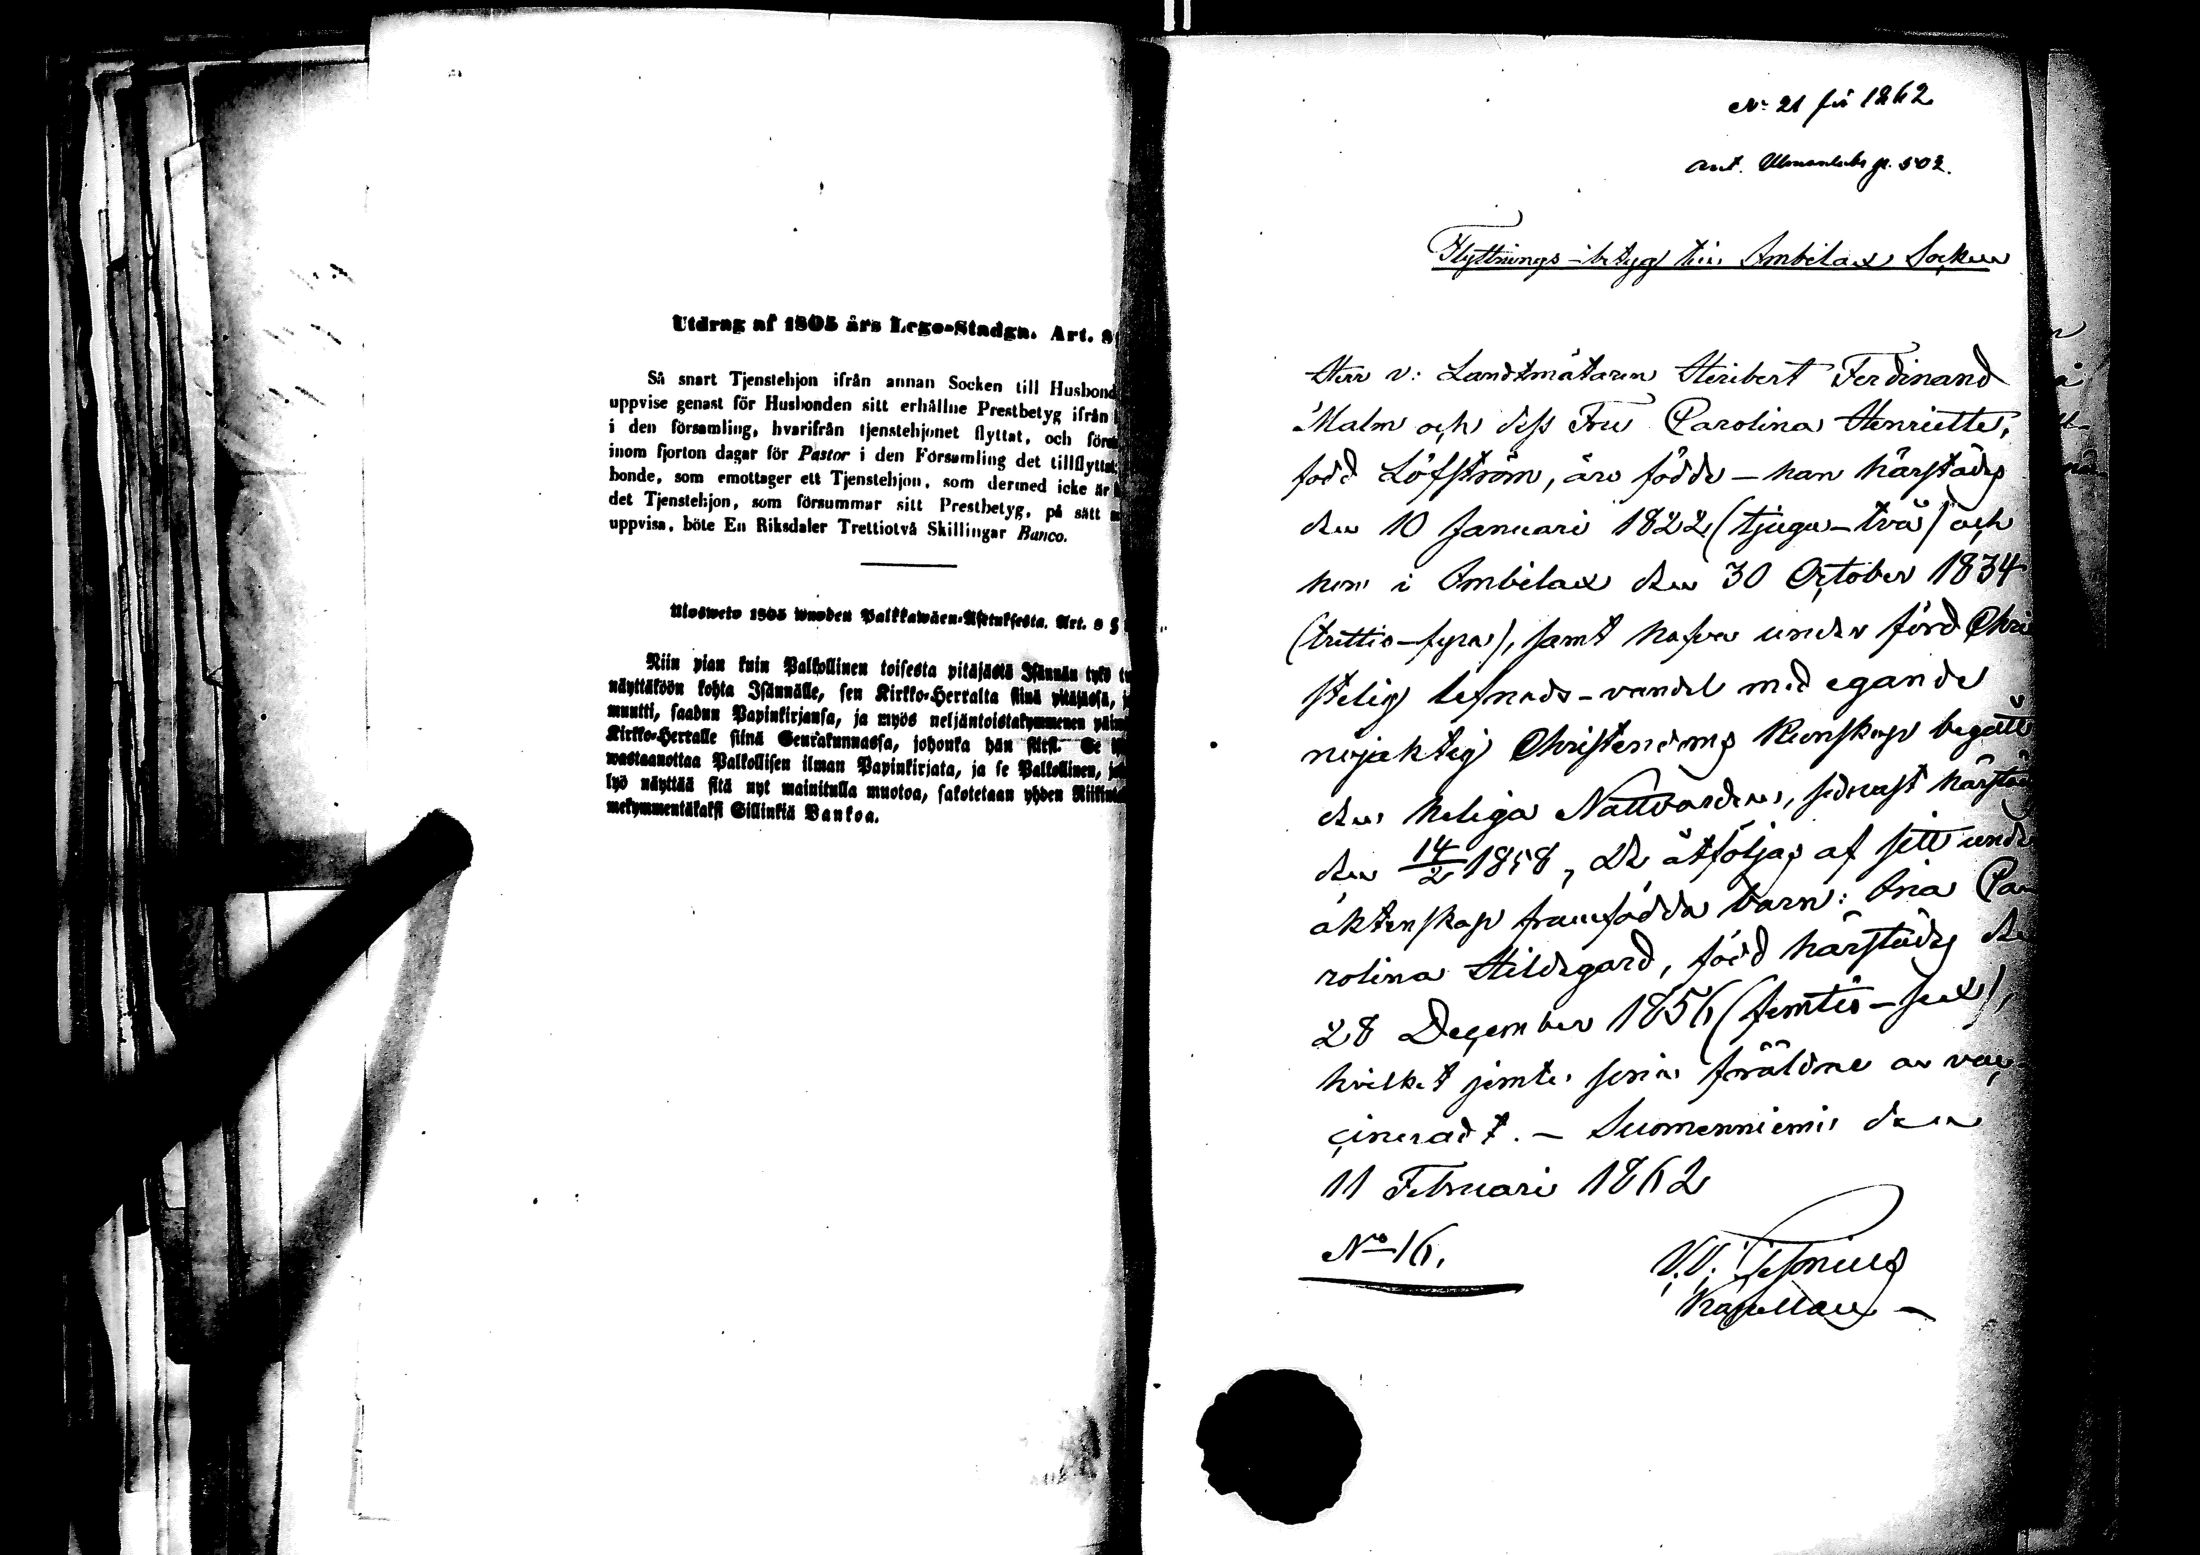 Utdrag af 1805 års Lego-Stadga. Art. 8
Så snart Tjenstehjon ifrån annan Socken till Husbond
uppvise genast för Husbonden sitt erhållne Prestbetyg ifrån
i den församling, hvarifrån tjenstehjonet flyttat, och före
inom fjorton dagar för Pastor i den Församling det tillflyttat
bonde, som emottager ett Tjenstehjon, som dermed icke är
det Tjenstehjon, som försummar sitt Prestbetyg, på sätt
uppvisa, böte En Riksdaler Trettiotvå Skillingar Banco.
Ulosweto 1805 wuoden Palkkawäen-Asetuksesta. Art. 8 §
Niin pian kuin Palkollinen toisesta pitäjästä Isännän tykö
näyttäköön kohta Isännälle, sen Kirkko-Herralta siinä pitäjässä,
muutti, saadun Papinkirjansa, ja myös neljäntoistakymmenen
Kirkko-Herralle siinä Seurakunnassa, johonka hän siirsi. Se
wastaanottaa Palkollisen ilman Papinkirjata, ja se Palkollinen,
lyö näyttää sitä nyt mainitulla muotoa, sakotetaan yhden
mekymmentäkaksi Sillinkiä Bankoa.
No 21 för 1862
ant. p. 502.
Flyttnings-betyg till Imbilax Socken
Herr v: Landtmätaren Heribert Ferdinand
Malm och dess Fru Carolina Henriette,
född Löfström, äro födde - han härstädes
den 10 Januari 1822 (tjugu-två) och
hon i Imbilax den 30 October 1834
(trettio-fyra), samt hafva under förd Chri
stelig lefnads-vandel med egande
nöjaktig Christendoms kunskap begått
den heliga Nattvarden, sednast härstä
den 14/2 1858, De åtföljas af sitt unde
äktenskap framfödda barn: Ina Ca
rolina Hildegard, född härstädes de
28 December 1856 (femtio-sex),
hvilket jemte sina föräldrar är vac-
cineradt. - Suomenniemi den
11 Februari 1862
No 16.
Kapellan